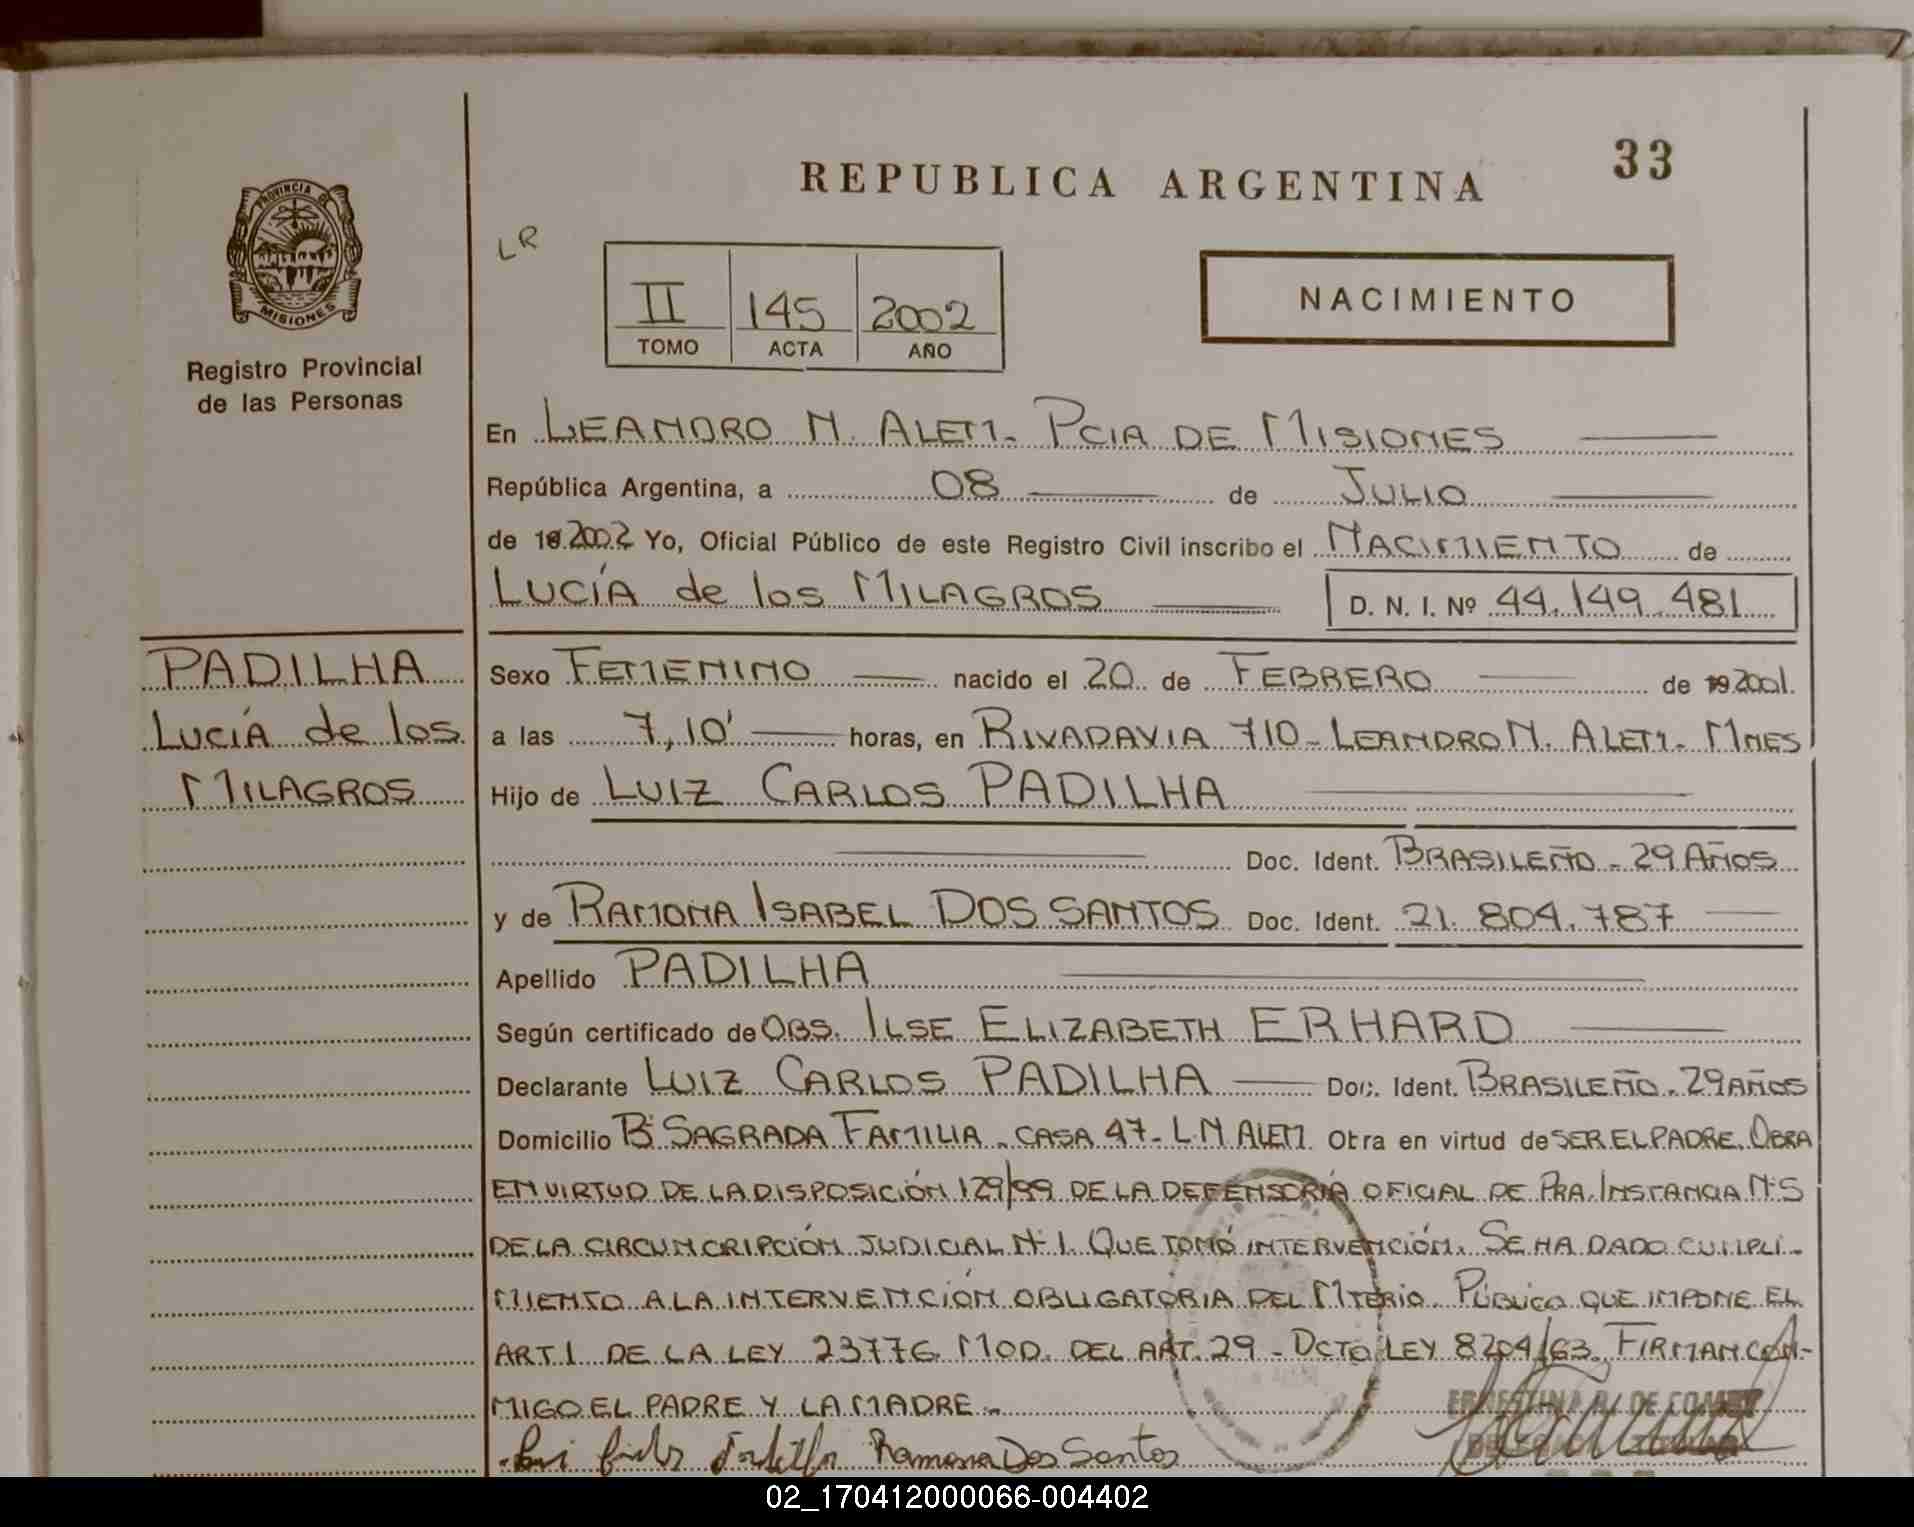 33
REPUBLICA ARGENTINA
PROVINCIA DE
MISIONES
Registro Provincial
de las Personas
LR
II 145 2002
TOMO ACTA AÑO
NACIMIENTO
En LEANDRO N. ALEM - PCIA DE MISIONES
República Argentina, a 08 de JULIO
de 19 2002 Yo, Oficial Público de este Registro Civil inscribo el NACIMIENTO de
LUCÍA de los MILAGROS D. N. I. Nº 44.149.481
PADILHA
LUCÍA de los
MILAGROS
Sexo FEMENINO nacido el 20 de FEBRERO de 19 2001.
a las 7,10' horas, en RIVADAVIA 710 - LEANDRO N. ALEM - MNES
Hijo de LUIZ CARLOS PADILHA
Doc. Ident. BRASILEÑO - 29 AÑOS
y de RAMONA ISABEL DOS SANTOS Doc. Ident. 21.804.787
Apellido PADILHA
Según certificado de OBS. ILSE ELIZABETH ERHARD
Declarante LUIZ CARLOS PADILHA Doc. Ident. BRASILEÑO - 29 AÑOS
Domicilio Bº SAGRADA FAMILIA - CASA 47 - L.N ALEM Obra en virtud de SER EL PADRE. OBRA
EN VIRTUD DE LA DISPOSICIÓN 129/99 DE LA DEFENSORÍA OFICIAL DE PRA. INSTANCIA Nº 5
DE LA CIRCUNCRIPCIÓN JUDICIAL Nº 1. QUE TOMÓ INTERVENCIÓN. SE HA DADO CUMPLI-
MIENTO A LA INTERVENCIÓN OBLIGATORIA DEL MTERIO. PÚBLICO QUE IMPONE EL
ART. 1 DE LA LEY 23776 MOD. DEL ART. 29 - DCTO LEY 8204/63. FIRMAN CON-
MIGO EL PADRE Y LA MADRE -
ERNESTINA R. DE
Ramona Dos Santos
02_170412000066-004402